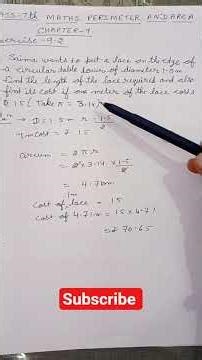 CLASS-7th MATHS PERIMETER AND AREA
CHAPTER-9
Exercise-9.2
Suma wants to put a lace on the edge of
a circular table cover of diameter 1.5m
Find the length of the lace required and also
find its cost if one meter of the lace costs
₹ 15 (Take π = 3.14)
D = 1.5m r = 1.5/2
1m cost = ₹ 15
circum = 2πr
= 2×3.14×1.5/2
= 4.71m
1m
Cost of lace = 15
cost of 4.71m = 15×4.71
=₹ 70.65
Subscribe